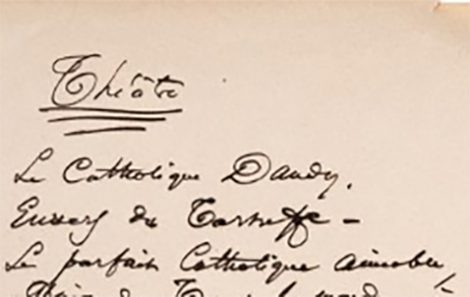 Théâtre
Le Catholique Dandy.
Envers du Tartuffe –
Le parfait Catholique aimable,